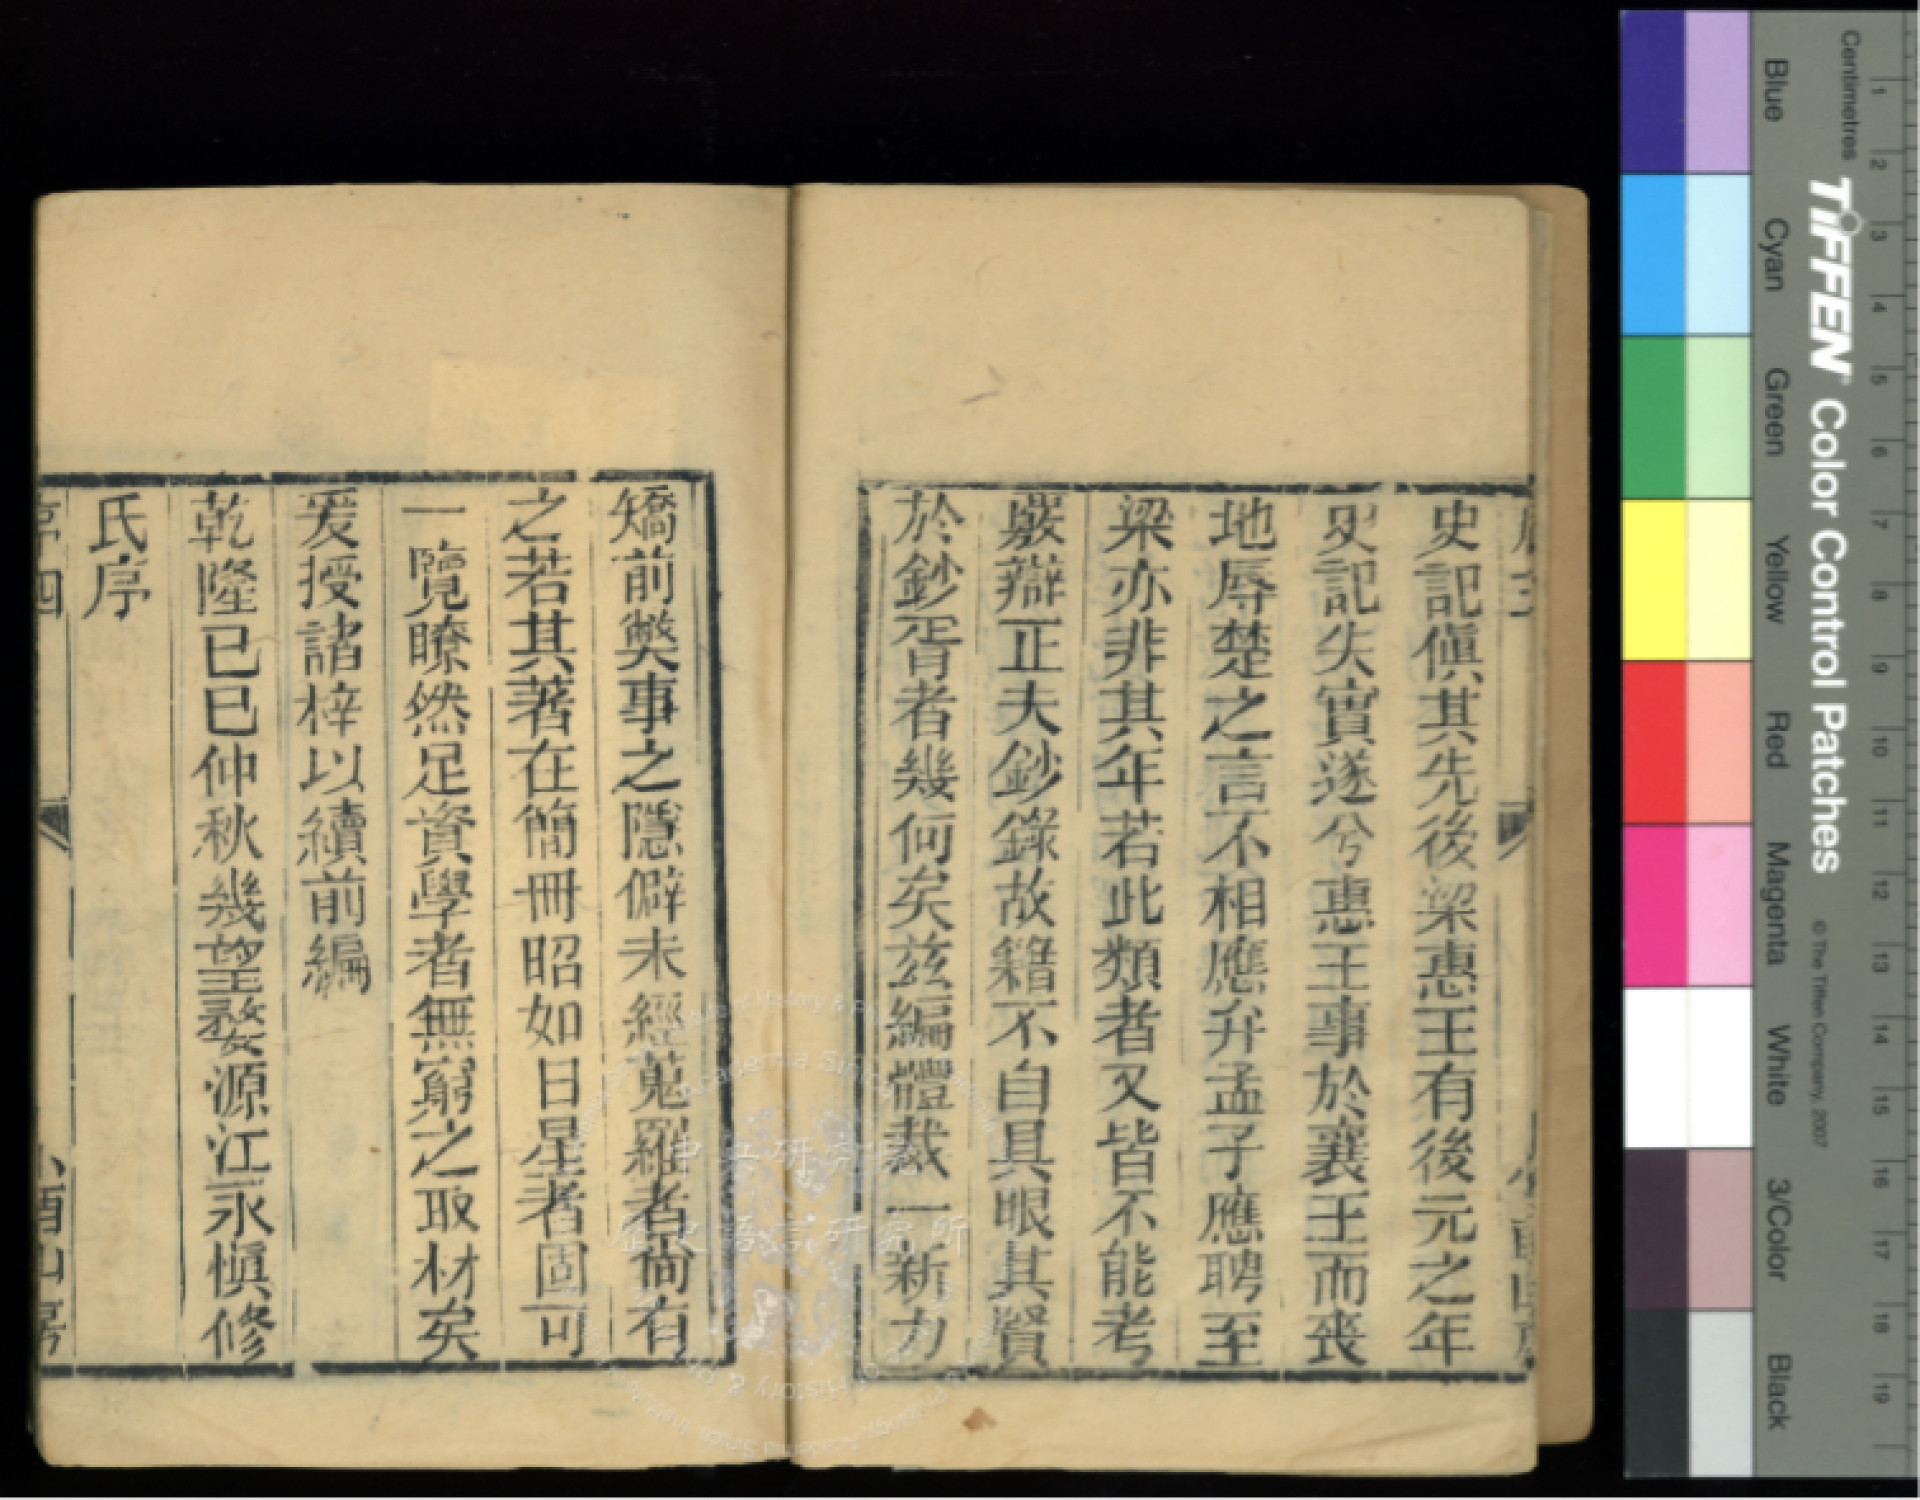 史記傎其先後梁惠王有後元之年
史記失實遂兮惠王事於襄王而喪
地辱楚之言不相應弁孟子應聘至
梁亦非其年若此類者又皆不能考
嚴辯正夫鈔錄故籍不自具眼其賢
於鈔胥者幾何矣茲編體裁一新力
矯前獘事之隱僻未經蒐羅者尚有
之若其著在簡冊昭如日星者固可
一覽瞭然足資學者無窮之取材矣
爰授諸梓以續前編
乾隆己巳仲秋幾望婺源江永愼修
氏序
序四
酉山房
Centimetres
1 2 3 4 5 6 7 8 9 10 11 12 13 14 15 16 17 18 19
TIFFEN Color Control Patches © The Tiffen Company, 2007
Blue Cyan Green Yellow Red Magenta White 3/Color Black